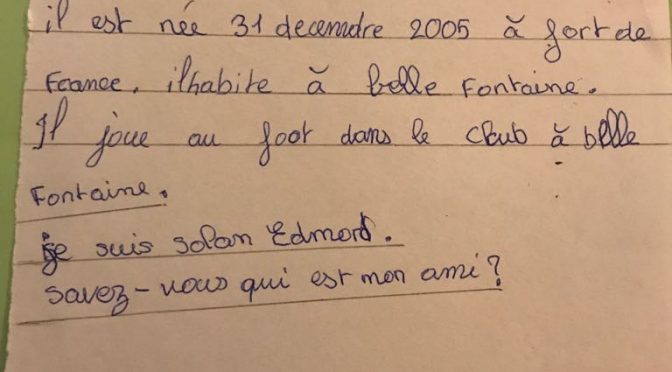 il est née 31 decemdre 2005 à fort de
France. il habite à belle Fontaine.
Il joue au foot dans le club à belle
Fontaine.
je suis solan Edmond.
savez-vous qui est mon ami?